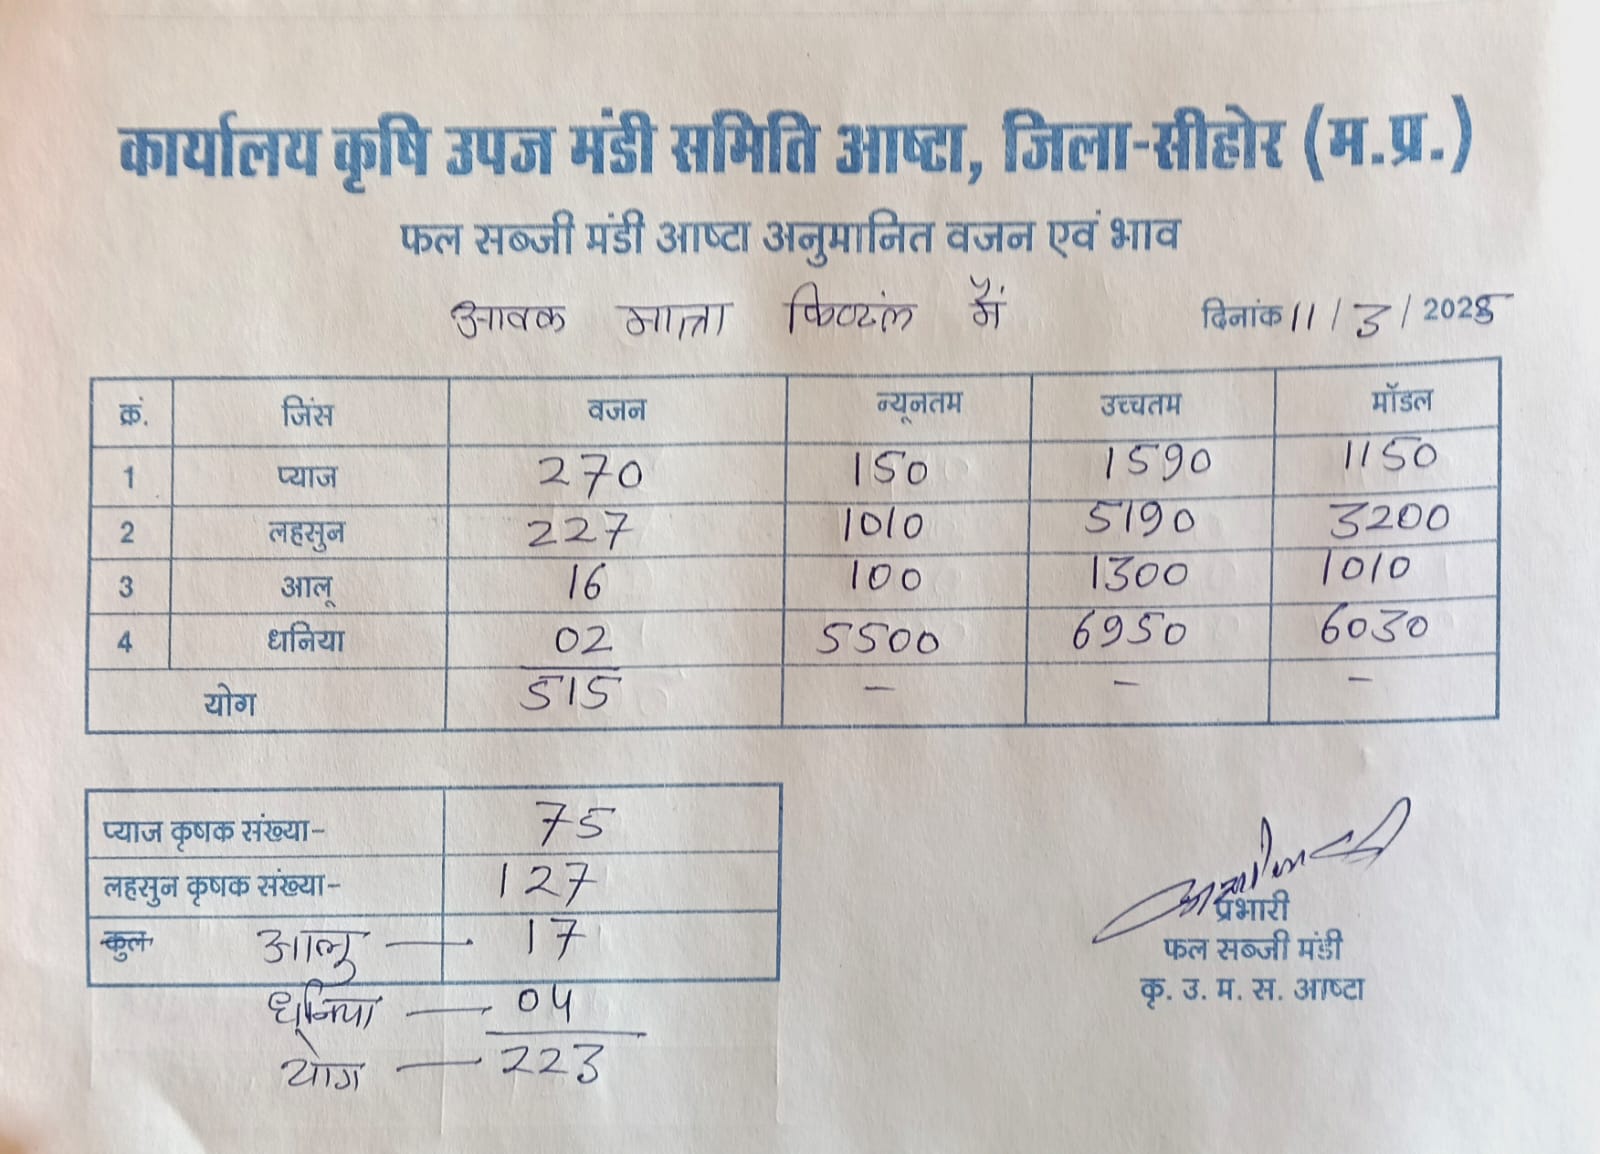 कार्यालय कृषि उपज मंडी समिति आष्टा, जिला-सीहोर (म.प्र.)
फल सब्जी मंडी आष्टा अनुमानित वजन एवं भाव
आवक मात्रा क्विटंल में दिनांक 11/3/2025
क्रं. जिंस वजन न्यूनतम उच्चतम मॉडल
1 प्याज 270 150 1590 1150
2 लहसुन 227 1010 5190 3200
3 आलू 16 100 1300 1010
4 धनिया 02 5500 6950 6030
योग 515 - - -
प्याज कृषक संख्या- 75
लहसुन कृषक संख्या- 127
कुल आलू — 17
धनिया — 04
योग — 223
प्रभारी
फल सब्जी मंडी
कृ. उ. म. स. आष्टा